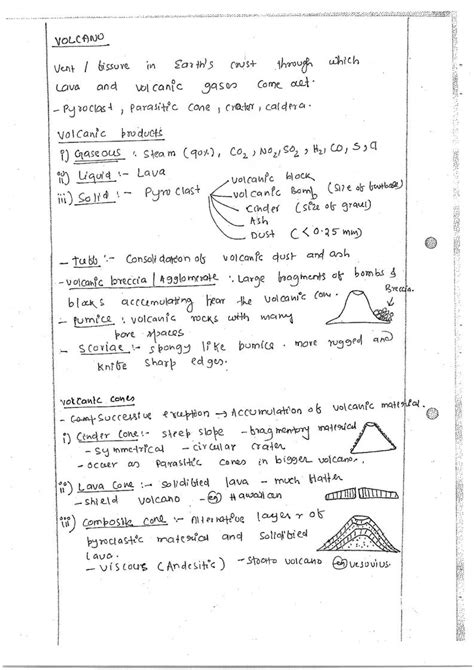 VOLCANO
Vent / fissure in Earth's crust through which
Lava and volcanic gases come out.
- Pyroclast, parasitic cone, crater, caldera.
Volcanic products
i) Gaseous :- Steam (90%), CO2, NO2, SO2, H2, CO, S, Cl
ii) Liquid :- Lava
iii) Solid :- Pyroclast
Volcanic block
Volcanic Bomb (Size of football)
Cinder (size of gravel)
Ash
Dust (<0.25 mm)
- Tuff :- Consolidation of volcanic dust and ash
- Volcanic breccia / Agglomerate : Large fragments of bombs &
blocks accumulating near the volcanic cone.
Breccia.
- Pumice : volcanic rocks with many
pore spaces
- Scoriae :- spongy like pumice. more rugged and
knife sharp edges.
Volcanic cones
- Successive eruption → Accumulation of volcanic material.
i) Cinder Cone:- steep slope - fragmentary material
- symmetrical - circular crater
- occur as parasitic cones in bigger volcano.
ii) Lava Cone :- solidified lava - much flatter
- shield volcano - eg Hawaiian
iii) Composite cone :- Alternative layer r of
pyroclastic material and solidified
lava.
- Viscous (Andesitic) - strato volcano eg vesuvius.